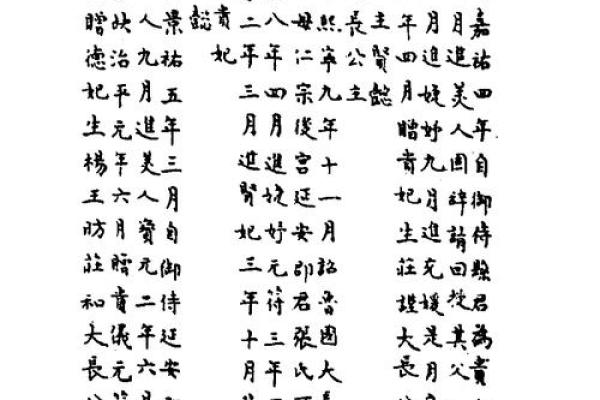 嘉祐四年自御侍縣君為貴
月進美人固辭請回授其父
月進婕妤九月進充媛是月
年四月贈貴妃生莊諡大長
主賢懿
長公主
熙寧九年十一月詔魯國大
母仁宗後宮延安郡君張氏
八年四月進婕妤元符三年
二年三月進賢妃三年十月
貴妃
懿
景祐五年三月自御侍延安
人九月進美人寶元二年六
治平元年六月贈貴儀元
贈德妃生楊王昉莊和大長